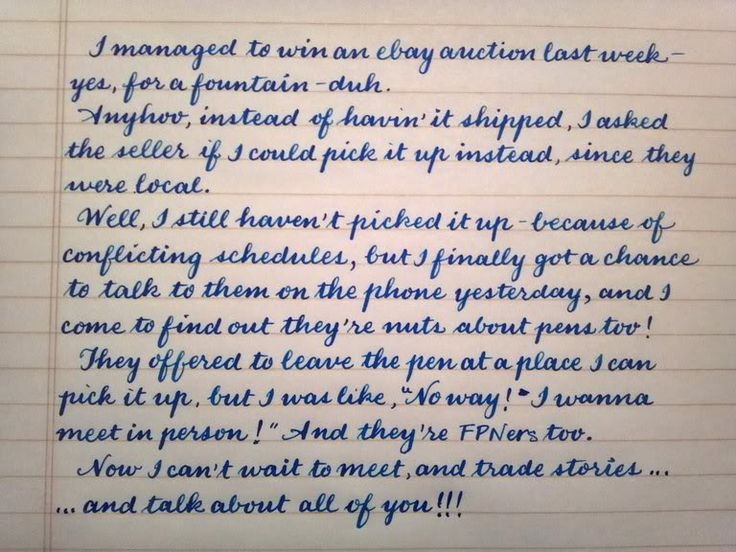 I managed to win an ebay auction last week-
yes, for a fountain-duh.
Anyhoo, instead of havin' it shipped, I asked
the seller if I could pick it up instead, since they
were local.
Well, I still haven't picked it up - because of
conflicting schedules, but I finally got a chance
to talk to them on the phone yesterday, and I
come to find out they're nuts about pens too!
They offered to leave the pen at a place I can
pick it up, but I was like, "No way!- I wanna
meet in person!" And they're FPNers too.
Now I can't wait to meet, and trade stories ...
... and talk about all of you!!!